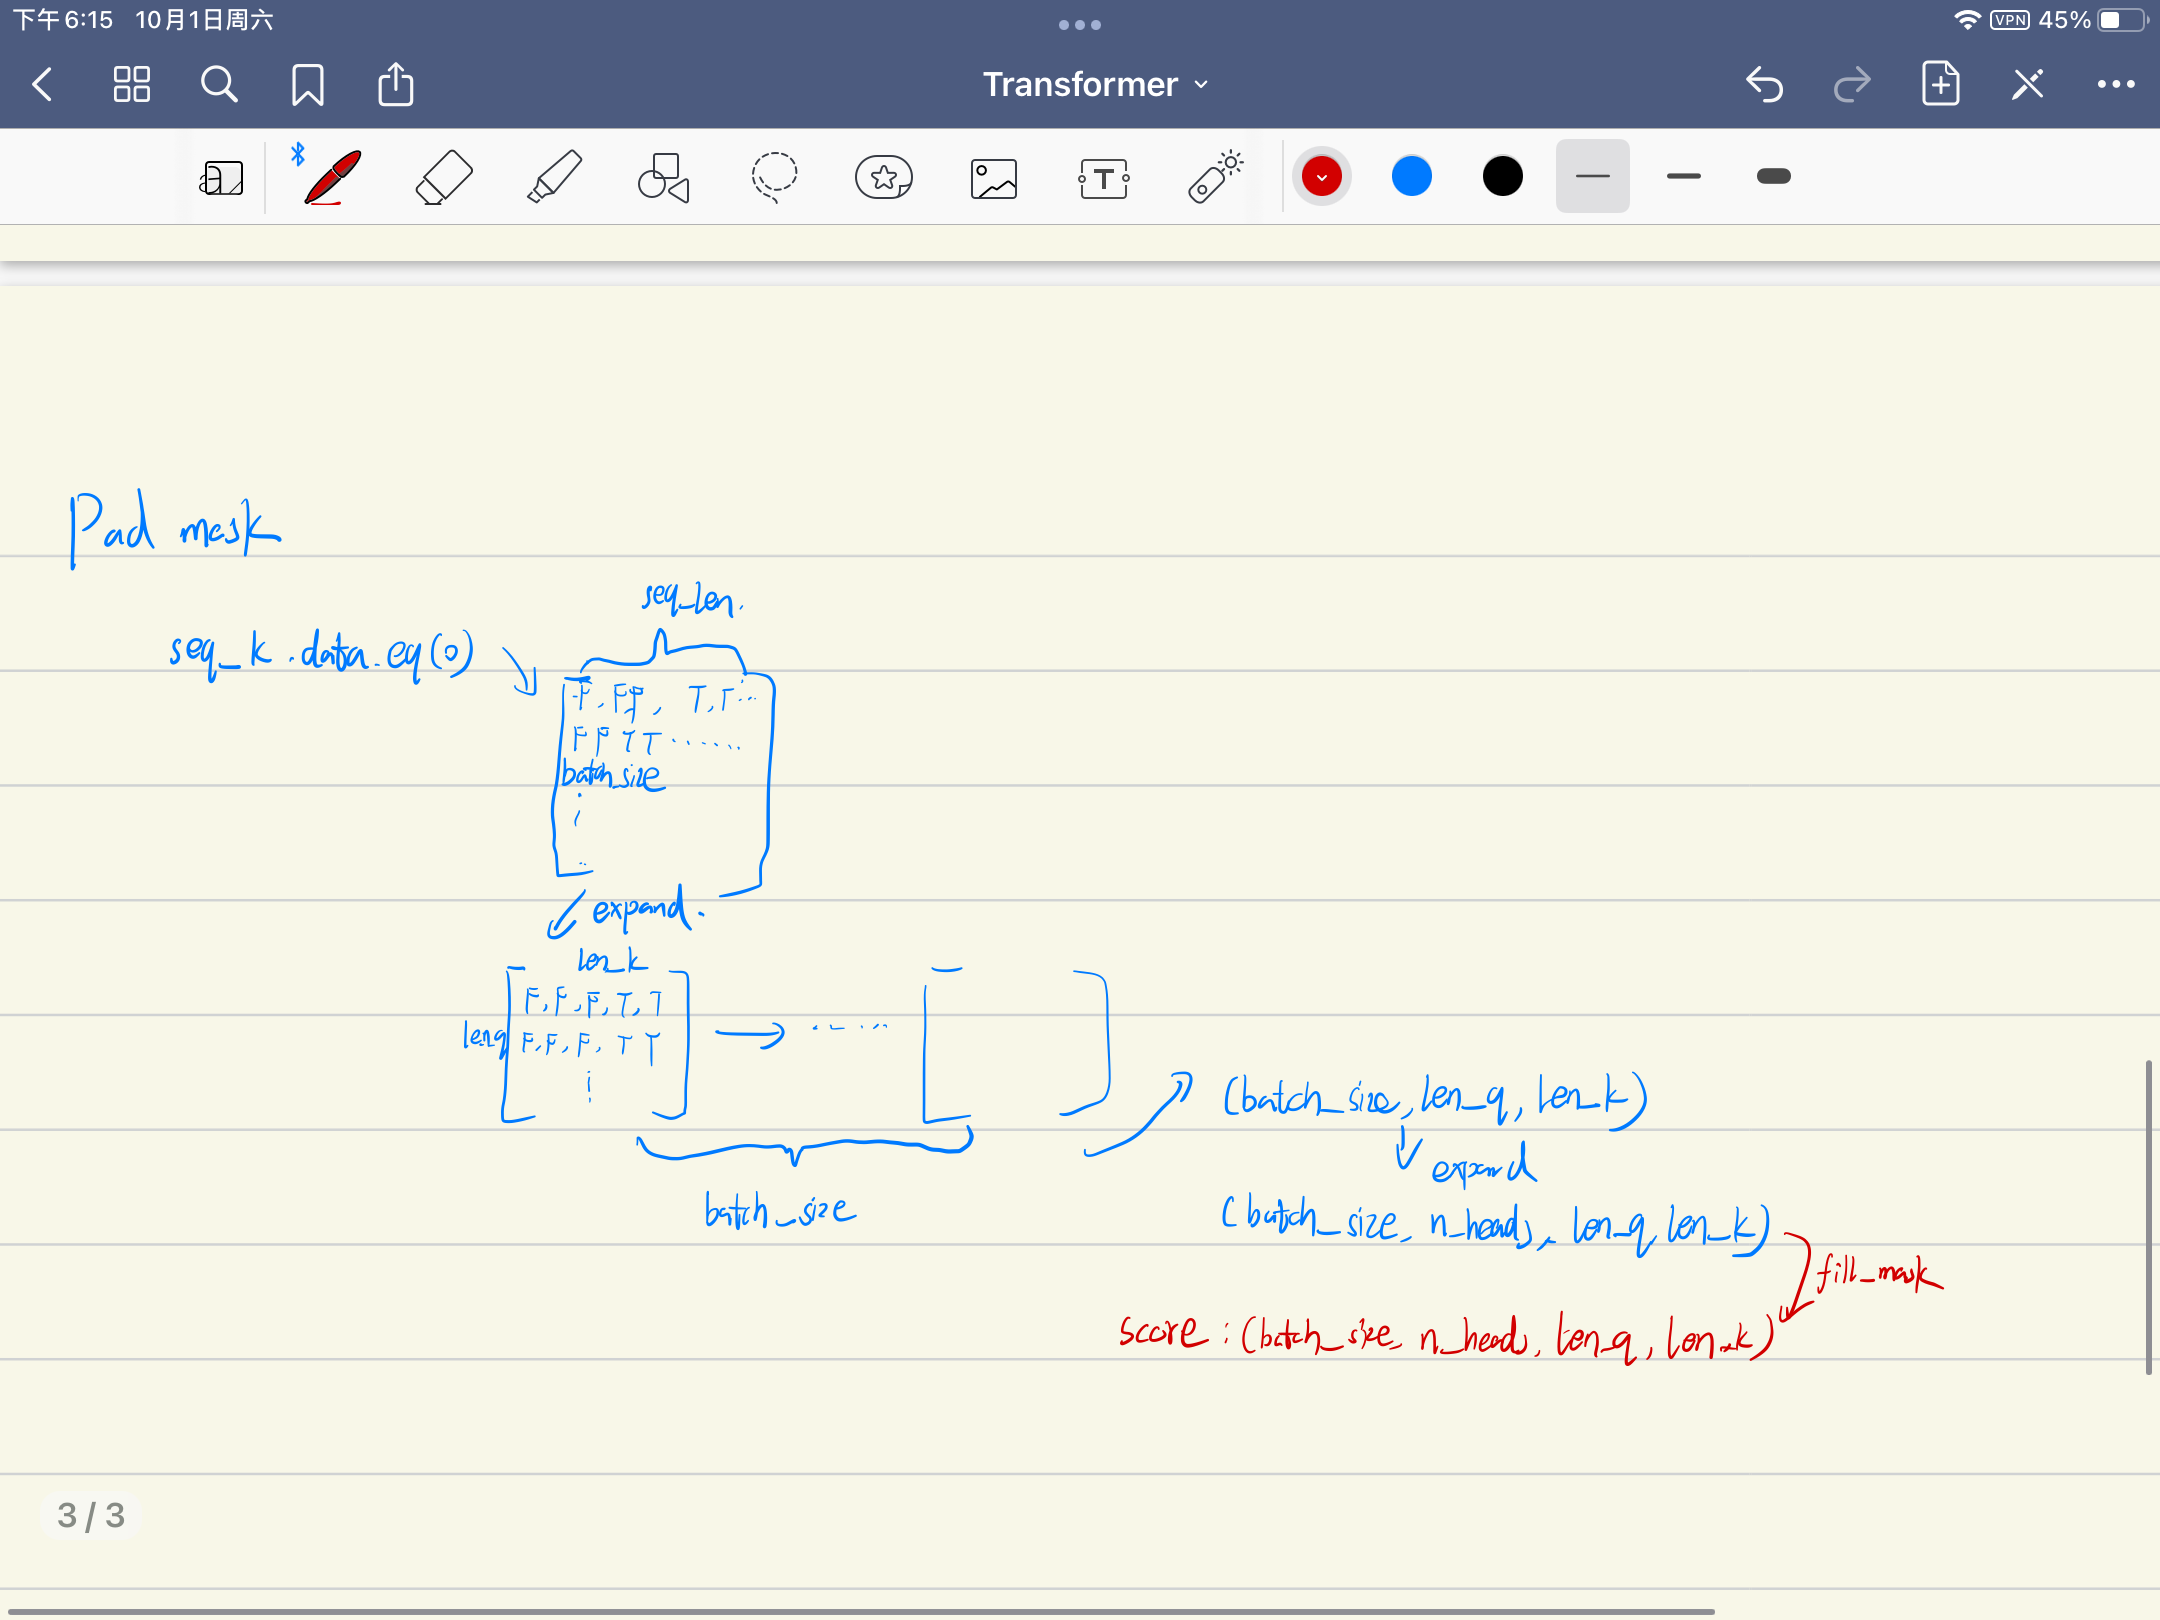 下午6:15 10月1日周六
VPN 45%
Transformer
T
Pad mask
seq_len.
seq_k.data.eq(0)
F, F F, T, T...
F F T T ......
batch_size
expand.
len_k
F, F, F, T, T
lenq F, F, F, T T
batch_size
(batch_size, len_q, len_k)
expand
(batch_size, n_heads, len_q, len_k)
fill_mask
score: (batch_size, n_heads, len_q, len_k)
3 / 3